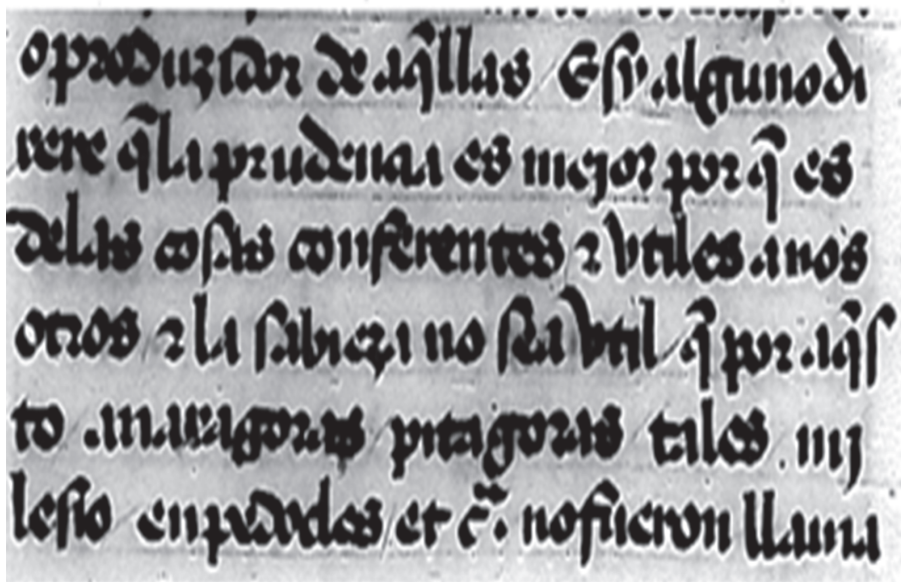 o produzidor de aq̃llas E sy alguno di
xere q̃ la prudençia es mejor por q̃ es
delas cosas conferentes ⁊ vtiles a nos
otros ⁊ la sabieza no sea vtil q̃ por aq̃s
to anaxagoras pitagoras tales mj
lesio enpedocles et c̃. no fueron llama